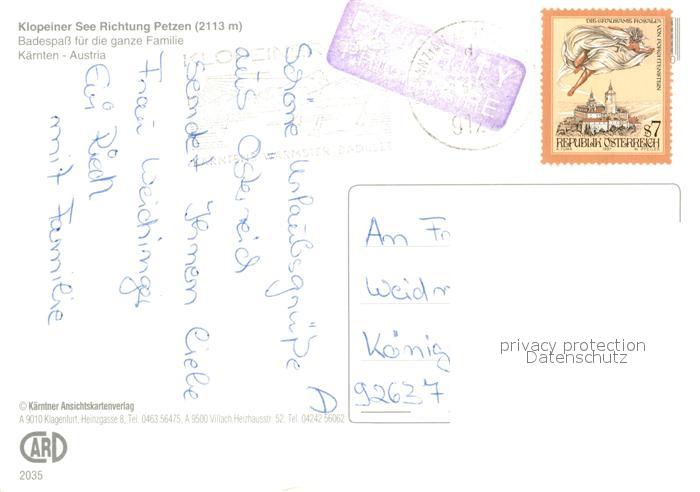 Klopeiner See Richtung Petzen (2113 m)
Badespaß für die ganze Familie
Kärnten - Austria
Schöne Urlaubsgrüße
aus Österreich
sendet Ihnen liebe
Frau
mit Familie
DIE GRAUSAME ROSALIA
VON FORCHTENSTEIN
S7
REPUBLIK ÖSTERREICH
KÄRNTENS WÄRMSTER BADESEE
An Fr
Weidn
König
92637
privacy protection
Datenschutz
© Kärntner Ansichtskartenverlag
A 9010 Klagenfurt, Heinzgasse 8, Tel. 0463 56475, A 9500 Villach, Heizhausstr. 52. Tel. 04242 56062
CARD
2035